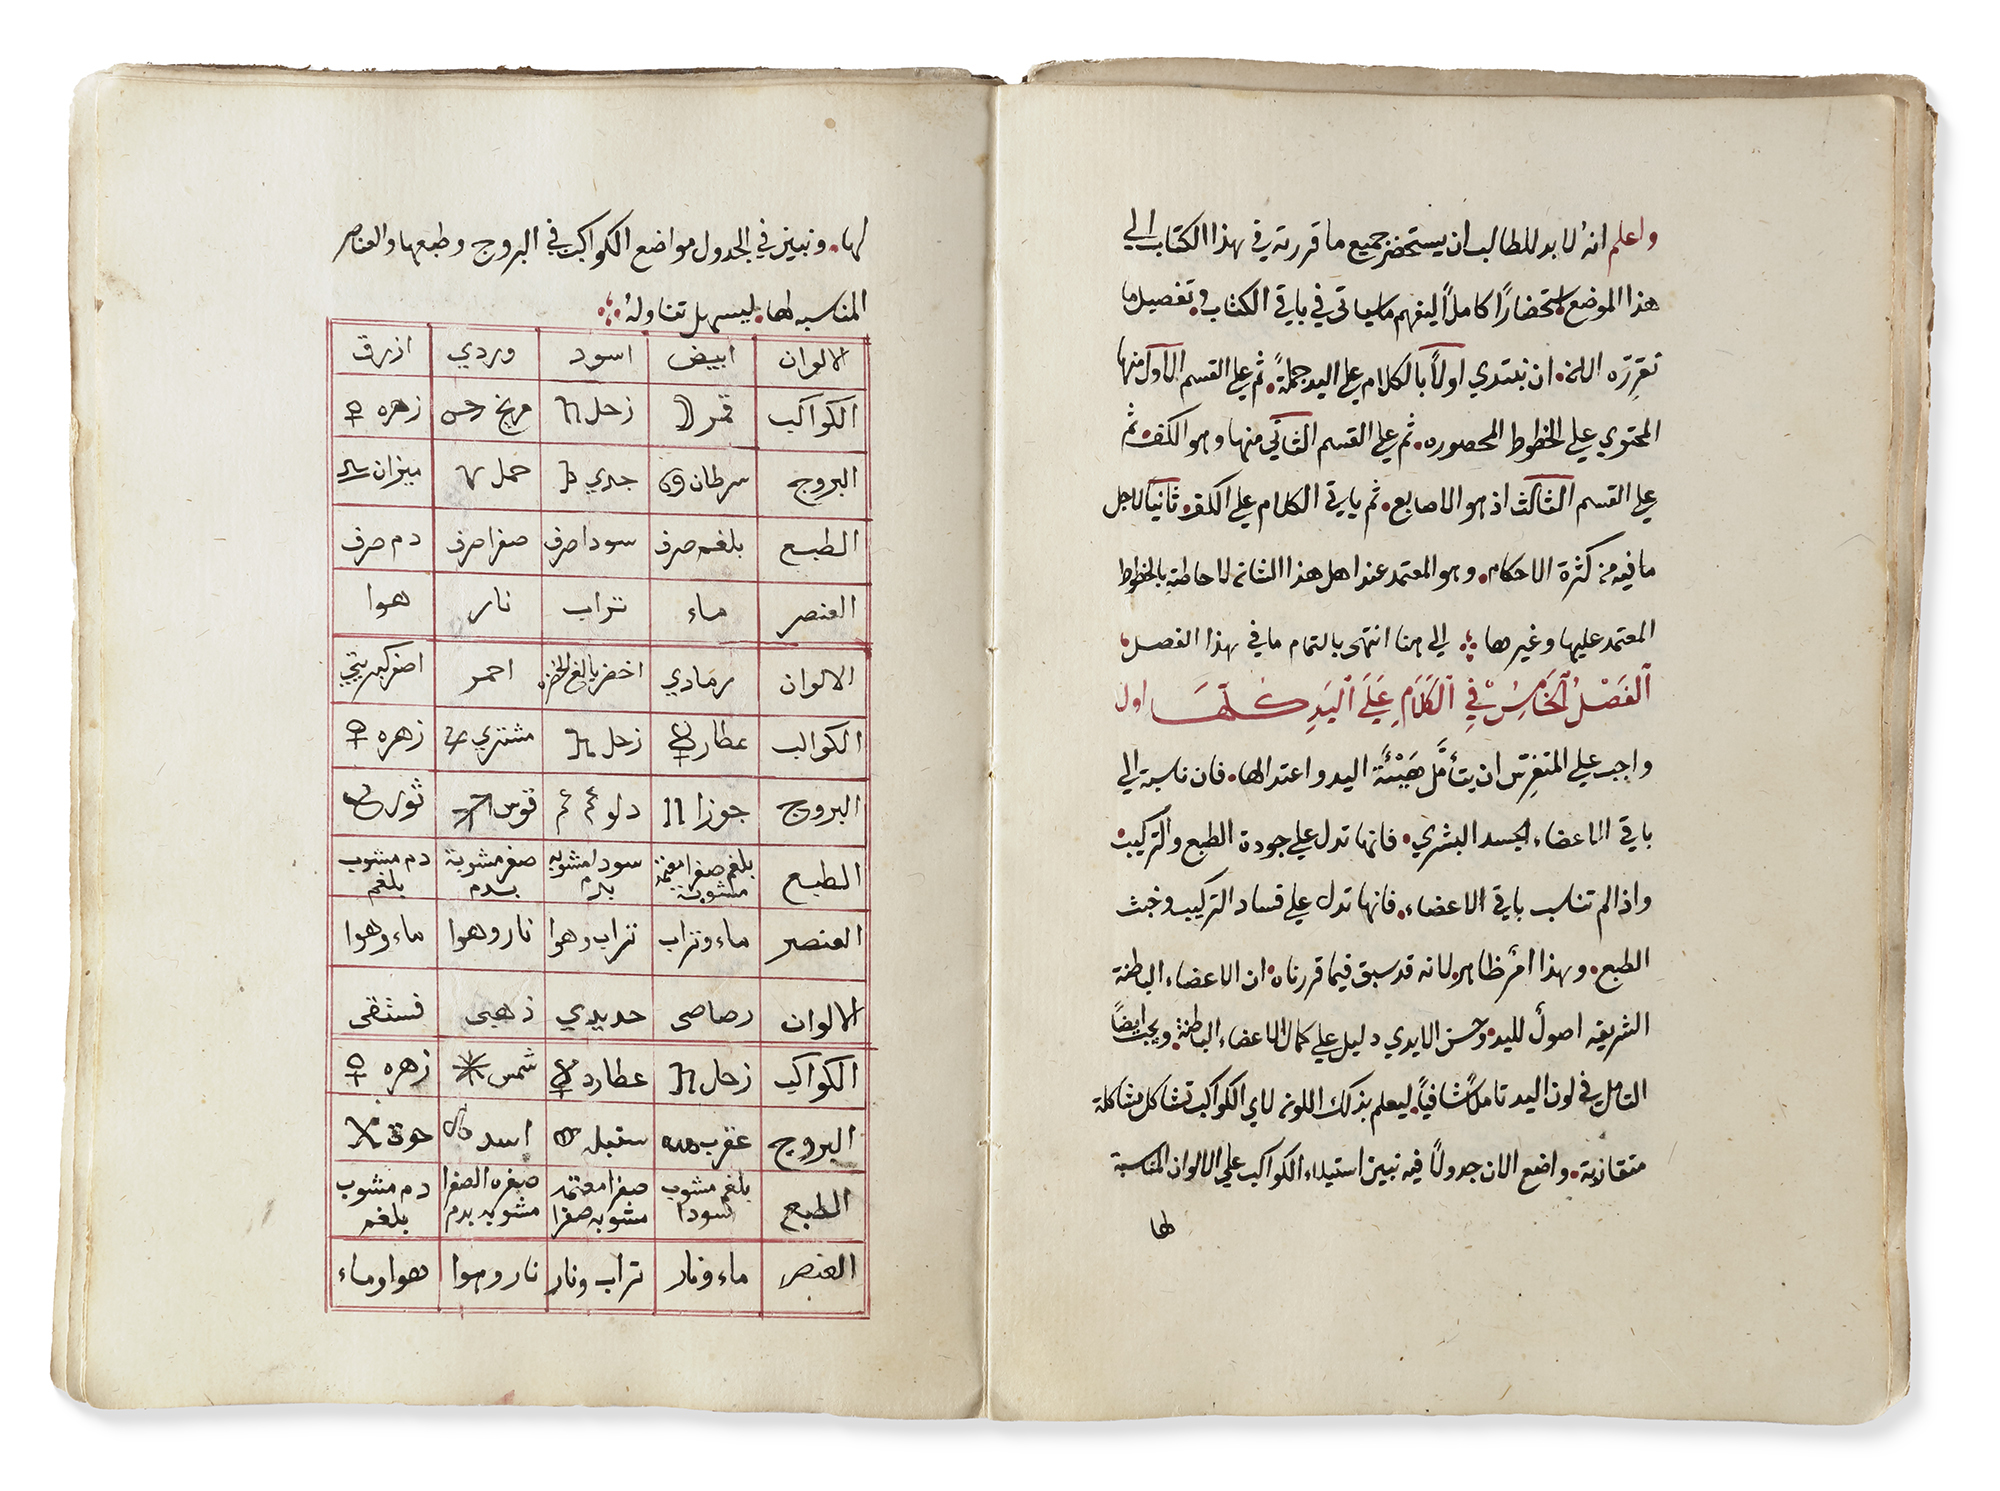 واعلم انه لا بد للطالب ان يستحضر جميع ما قررته في هذا الكتاب الي
هذا الموضع استحضارًا كاملًا ليفهم ما سياتي في باقي الكتاب وتفصيل ما
نقرره الان. ان نبتدي اولًا بالكلام علي اليد جملةً. ثم علي القسم الاول منها
المحتوي علي الخطوط المحصوره. ثم علي القسم الثاني منها وهو الكف. ثم
علي القسم الثالث اذ هو الاصابع. ثم ياتي الكلام علي الكف ثانيًا لاجل
ما فيه من كثرة الاحكام. وهو المعتمد عند اهل هذا الشان لاحاطته بالخطوط
المعتمد عليها وغيرها الي هنا انتهي بالتمام ما في هذا الفصل
الفَصْلُ الخَامِسْ فِي الكَلَامِ عَلَى اليَدِ كلّهَا اول
واجب علي المتفرّس ان يتأمّل هَيْئَة اليد واعتدالها. فان ناسبة الي
باقي الاعضاء الجسد البشري. فانها تدل علي جودة الطبع والتركيب
واذا لم تناسب باقي الاعضاء. فانها تدل علي فساد التركيب وخبث
الطبع. وهذا امر ظاهر. لانه قد سبق فيما قررناه ان الاعضاء الباطنة
الشريفه اصول لليد. وحسن الايدي دليل علي كمال الاعضاء الباطنة. ويجب ايضًا
التامل في لون اليد تاملًا شافيًا. ليعلم بذلك اللون لاي الكواكب تشاكل مشاكلة
متقاربة. واضع الان جدولًا فيه نبين استيلاء الكواكب علي الالوان المناسبة
لها
لها. ونبين في الجدول مواضع الكواكب في البروج وطبعها والعناصر
المناسبه لها. ليسهل تناوله
الالوان ابيض اسود وردي ازرق
الكواكب قمر ☽ زحل ♄ مريخ زهره ♀
البروج سرطان ♋ جدي ♑ حمل ♈ ميزان ♎
الطبع بلغم صرف سودا صرف صفرا صرف دم صرف
العنصر ماء تراب نار هوا
الالوان رمادي اخضر بالغ الخضره احمر اصفر كبريتي
الكواكب عطارد ☿ زحل ♄ مشتري ♃ زهره ♀
البروج جوزا ♊ دلو ♒ قوس ♐ ثور ♉
الطبع بلغم صفرا معتمه مشوبة سودا مشوبه بدم صفر مشوبة بدم دم مشوب بلغم
العنصر ماء وتراب تراب وهوا نار وهوا ماء وهوا
الالوان رصاصي حديدي ذهبي فستقي
الكواكب زحل ♄ عطارد ☿ شمس زهره ♀
البروج عقرب ♏ سنبله ♍ اسد ♌ حوة ♓
الطبع بلغم مشوب سودا صفرا معتمه مشوبه صفرا صفره الصفرا مشوبه بدم دم مشوب بلغم
العنصر ماء ونار تراب ونار نار وهوا هوا وماء